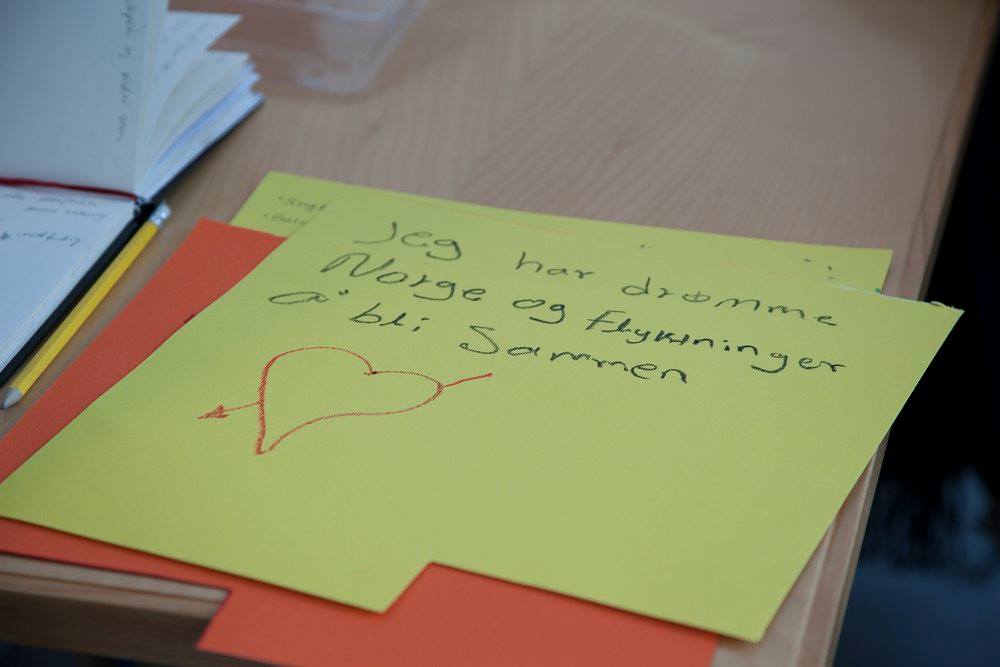 Jeg har drømme
Norge og Flyktninger
å bli Sammen
Norge